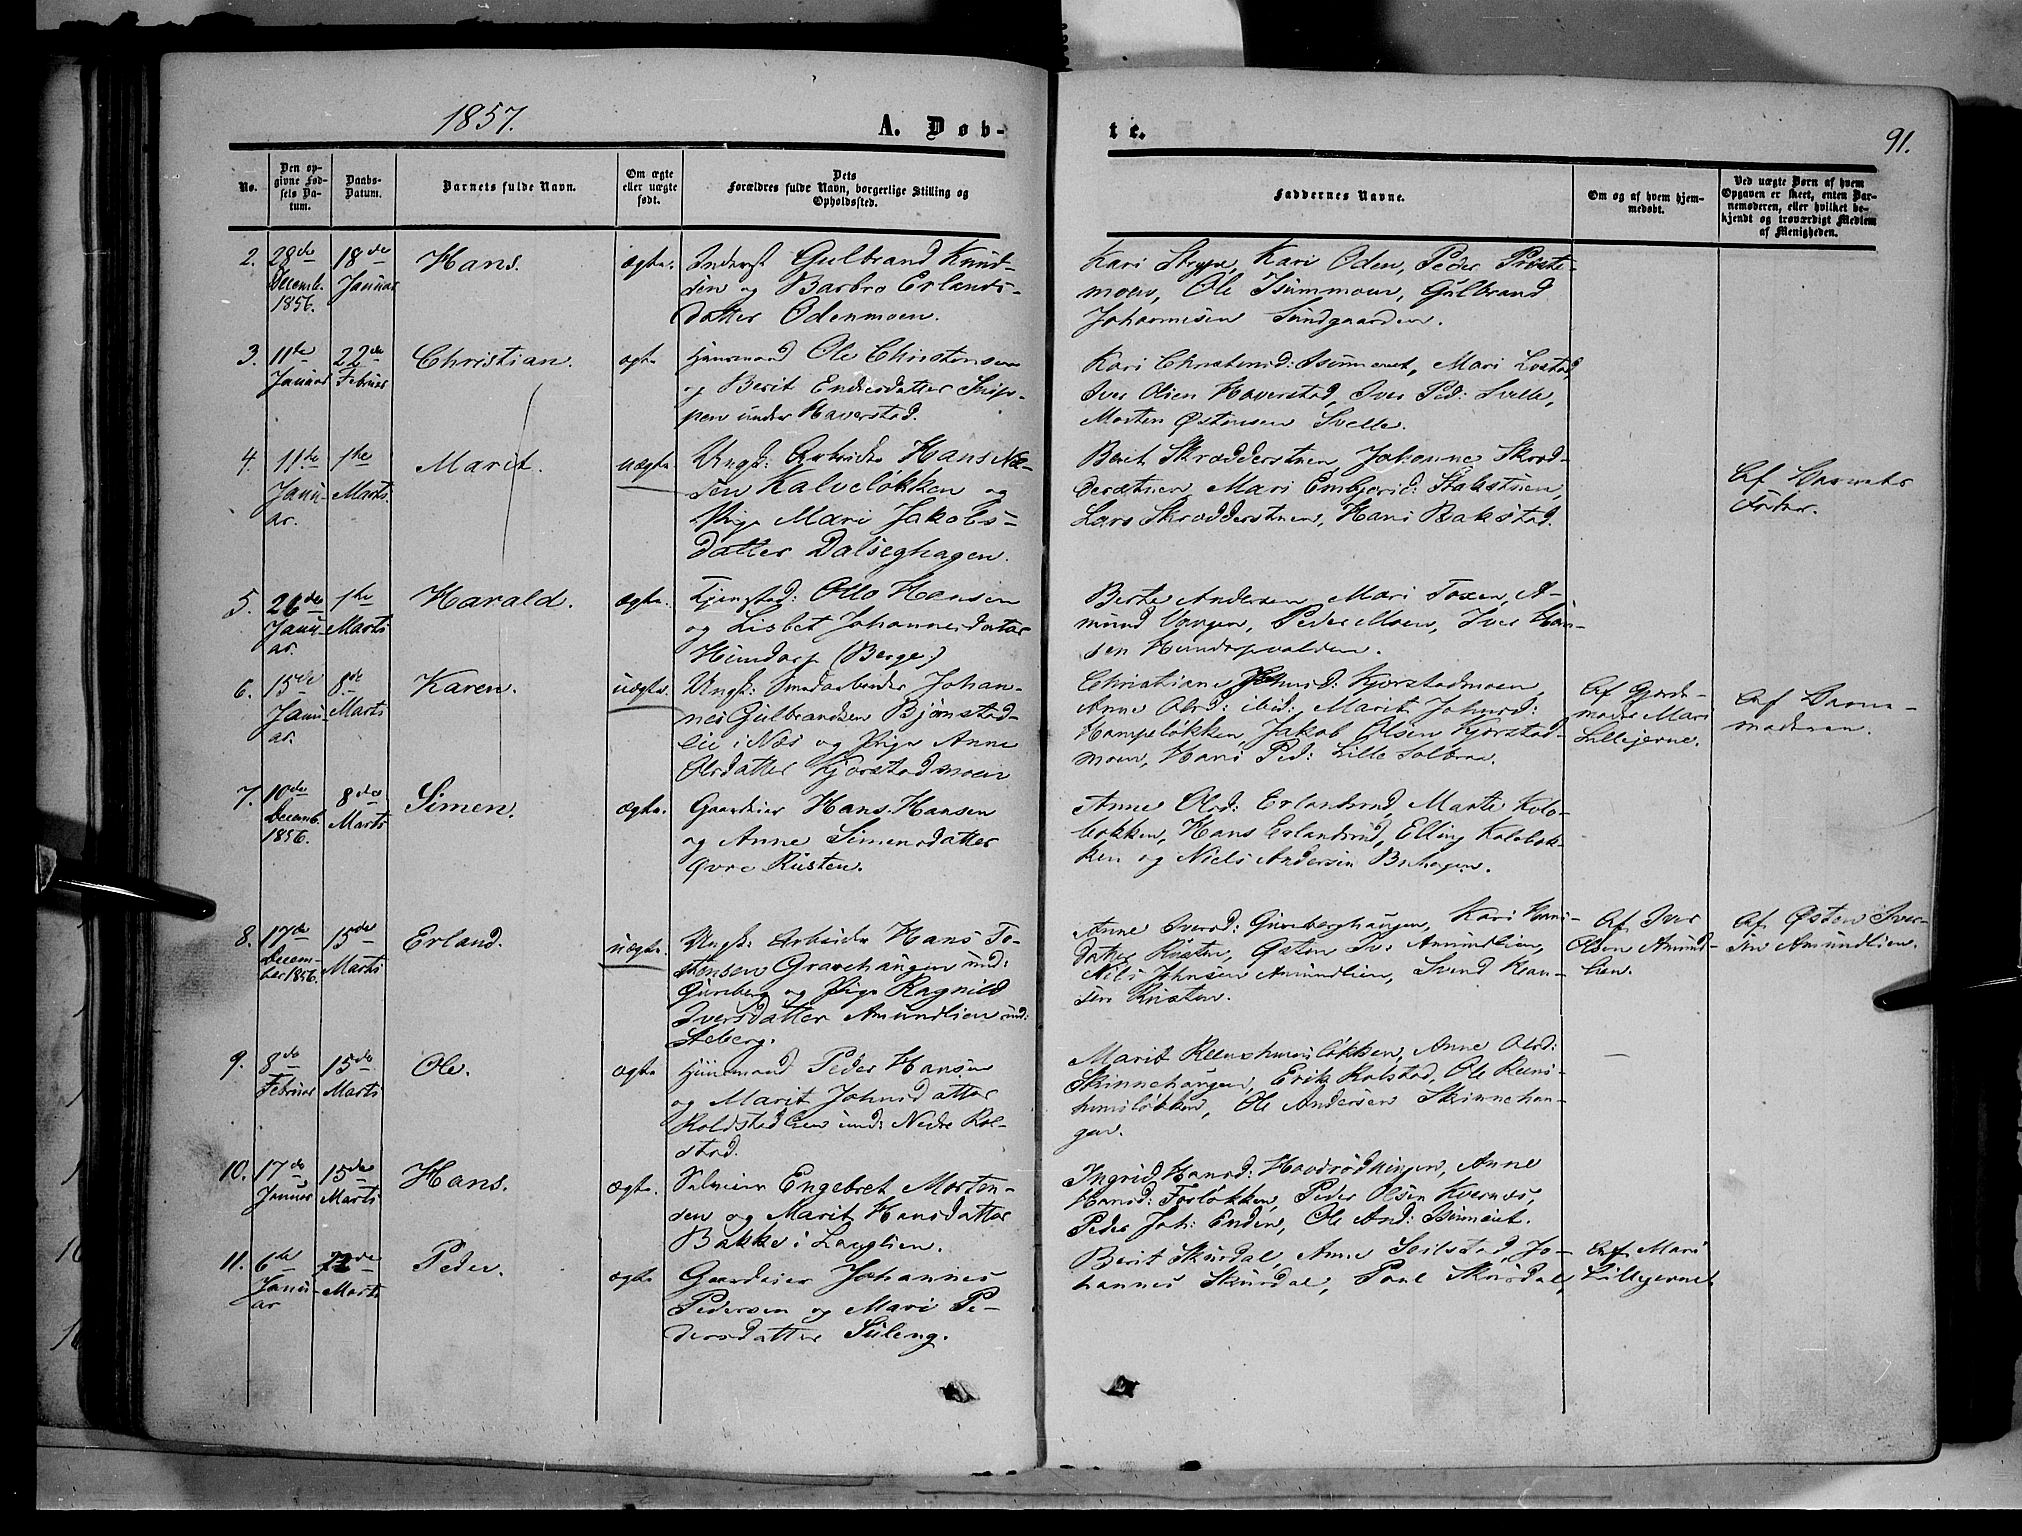 1857.
A. Døb-
te.
91.
No.
Den op-
givne Fød-
sels Da-
tum.
Daabs-
Datum.
Barnets fulde Navn.
Om ægte
eller uægte
født.
Dets
Forældres fulde Navn, borgerlige Stilling og
Opholdssted.
Faddernes Navne.
Om og af hvem hjem-
medøbt.
Ved uægte Børn af hvem
Opgaven er skeet, enten Bar-
nemoderen, eller hvilket be-
kjendt og troværdigt Medlem
af Menigheden.
2. 28de Decembr 1856. 18de Januar Hans. ægte.
Inderst Gulbrand Knud-
sen og Barbro Erlands-
datter Odenmoen.
Kari Oden, Peder Præste-
moen, Ole Isummoen, Gulbrand
Johannesen Sundgaarden.
3. 11te Januar 22de Februar Christian. ægte
Huusmand Ole Christensen
og Berit Endresdatter
under Haverstad.
Kari Christensd: Isumeiet, Mari
Iver Olsen Haverstad, Iver Ped: Svelle,
Morten Østensen Svelle.
4. 11te Janu-ar. 1ste Marts. Marit. uægte
Ungk: Arbeider Hans
sen Kalveløkken og
Pige Mari Jakobs-
datter Dalseghagen.
Berit Skrædderstuen, Johanne Skræd-
derstuen, Mari
Lars Skrædderstuen, Hans Bakstad.
Af Barnets
Fader.
5. 26de Janu-ar. 1ste Marts Harald. ægte.
Otto Hansen
og Lisbet Johannesdatter
Hundorp (Berge.)
Berte Andersen, Mari Toxen, A-
mund Vangen, Peder Moen, Iver Han-
sen Hundorpvolden.
6. 15de Janu-ar. 8de Marts Karen. uægte.
Ungk: Johan-
nes Gulbrandsen Bjørnstad-
lie i Næs og Pige Anne
Olsdatter Kjorstadmoen
Christiane Kjorstadmoen,
Anne Olsd: ibid: Marit Johnsd:
Hampeløkken, Jakob Olsen Kjorstad-
moen, Hans Ped: Lille Solbraa.
Af Gjorde-
moder Mari
Lillejerne.
Af Barne-
moderen.
7. 10de Decemb. 1856. 8de Marts Simen. ægte.
Gaardeier Hans Hansen
og Anne Simensdatter
øvre Rusten.
Anne Olsd: Erlandsrud, Marte Kolo-
bokken, Hans Erlandsrud, Elling Kolobok-
ken og Niels Andersen
8. 17de Decem-ber 1856. 15de Marts Erland. uægte.
Ungk: Arbeider Hans To-
stensen Gravehaugen und:
og Pige Ragnild
Iversdatter Amundlien und:
Steberg.
Anne Iversd: Kari Hans-
datter Rusten, Østen Iv: Amundlien,
Nils Johnsen Amundlien, Svend Han-
sen Rusten.
Af Iver
Olsen Amund-
lien.
Af Østen Iver-
sen Amundlien.
9. 8de Februar 15de Marts Ole. ægte
Huusmand Peder Hansen
og Marit Johnsdatter
Kolstadlien und: Nedre Kol-
stad.
Marit Anne Olsd:
Skinnehaugen, Erik Kolstad, Ole
Ole Andersen Skinnehau-
gen.
10. 17de Januar 15de Marts Hans. ægte.
Selveier Engebret Morten-
sen og Marit Hansdatter
Bakke i Lauglien.
Ingrid Hansd: Anne
Hansd: Forløkken, Peder Olsen Kvernæs,
Peder Joh: Enden, Ole And: Isumeiet.
11. 6te Janu-ar 22de Marts Peder. ægte
Gaardeier Johannes
Pedersen og Mari Pe-
dersdatter Suleng.
Berit Skurdal, Anne Jo-
hannes Skurdal, Paul Skurdal,
Af Mari
Lillejernet